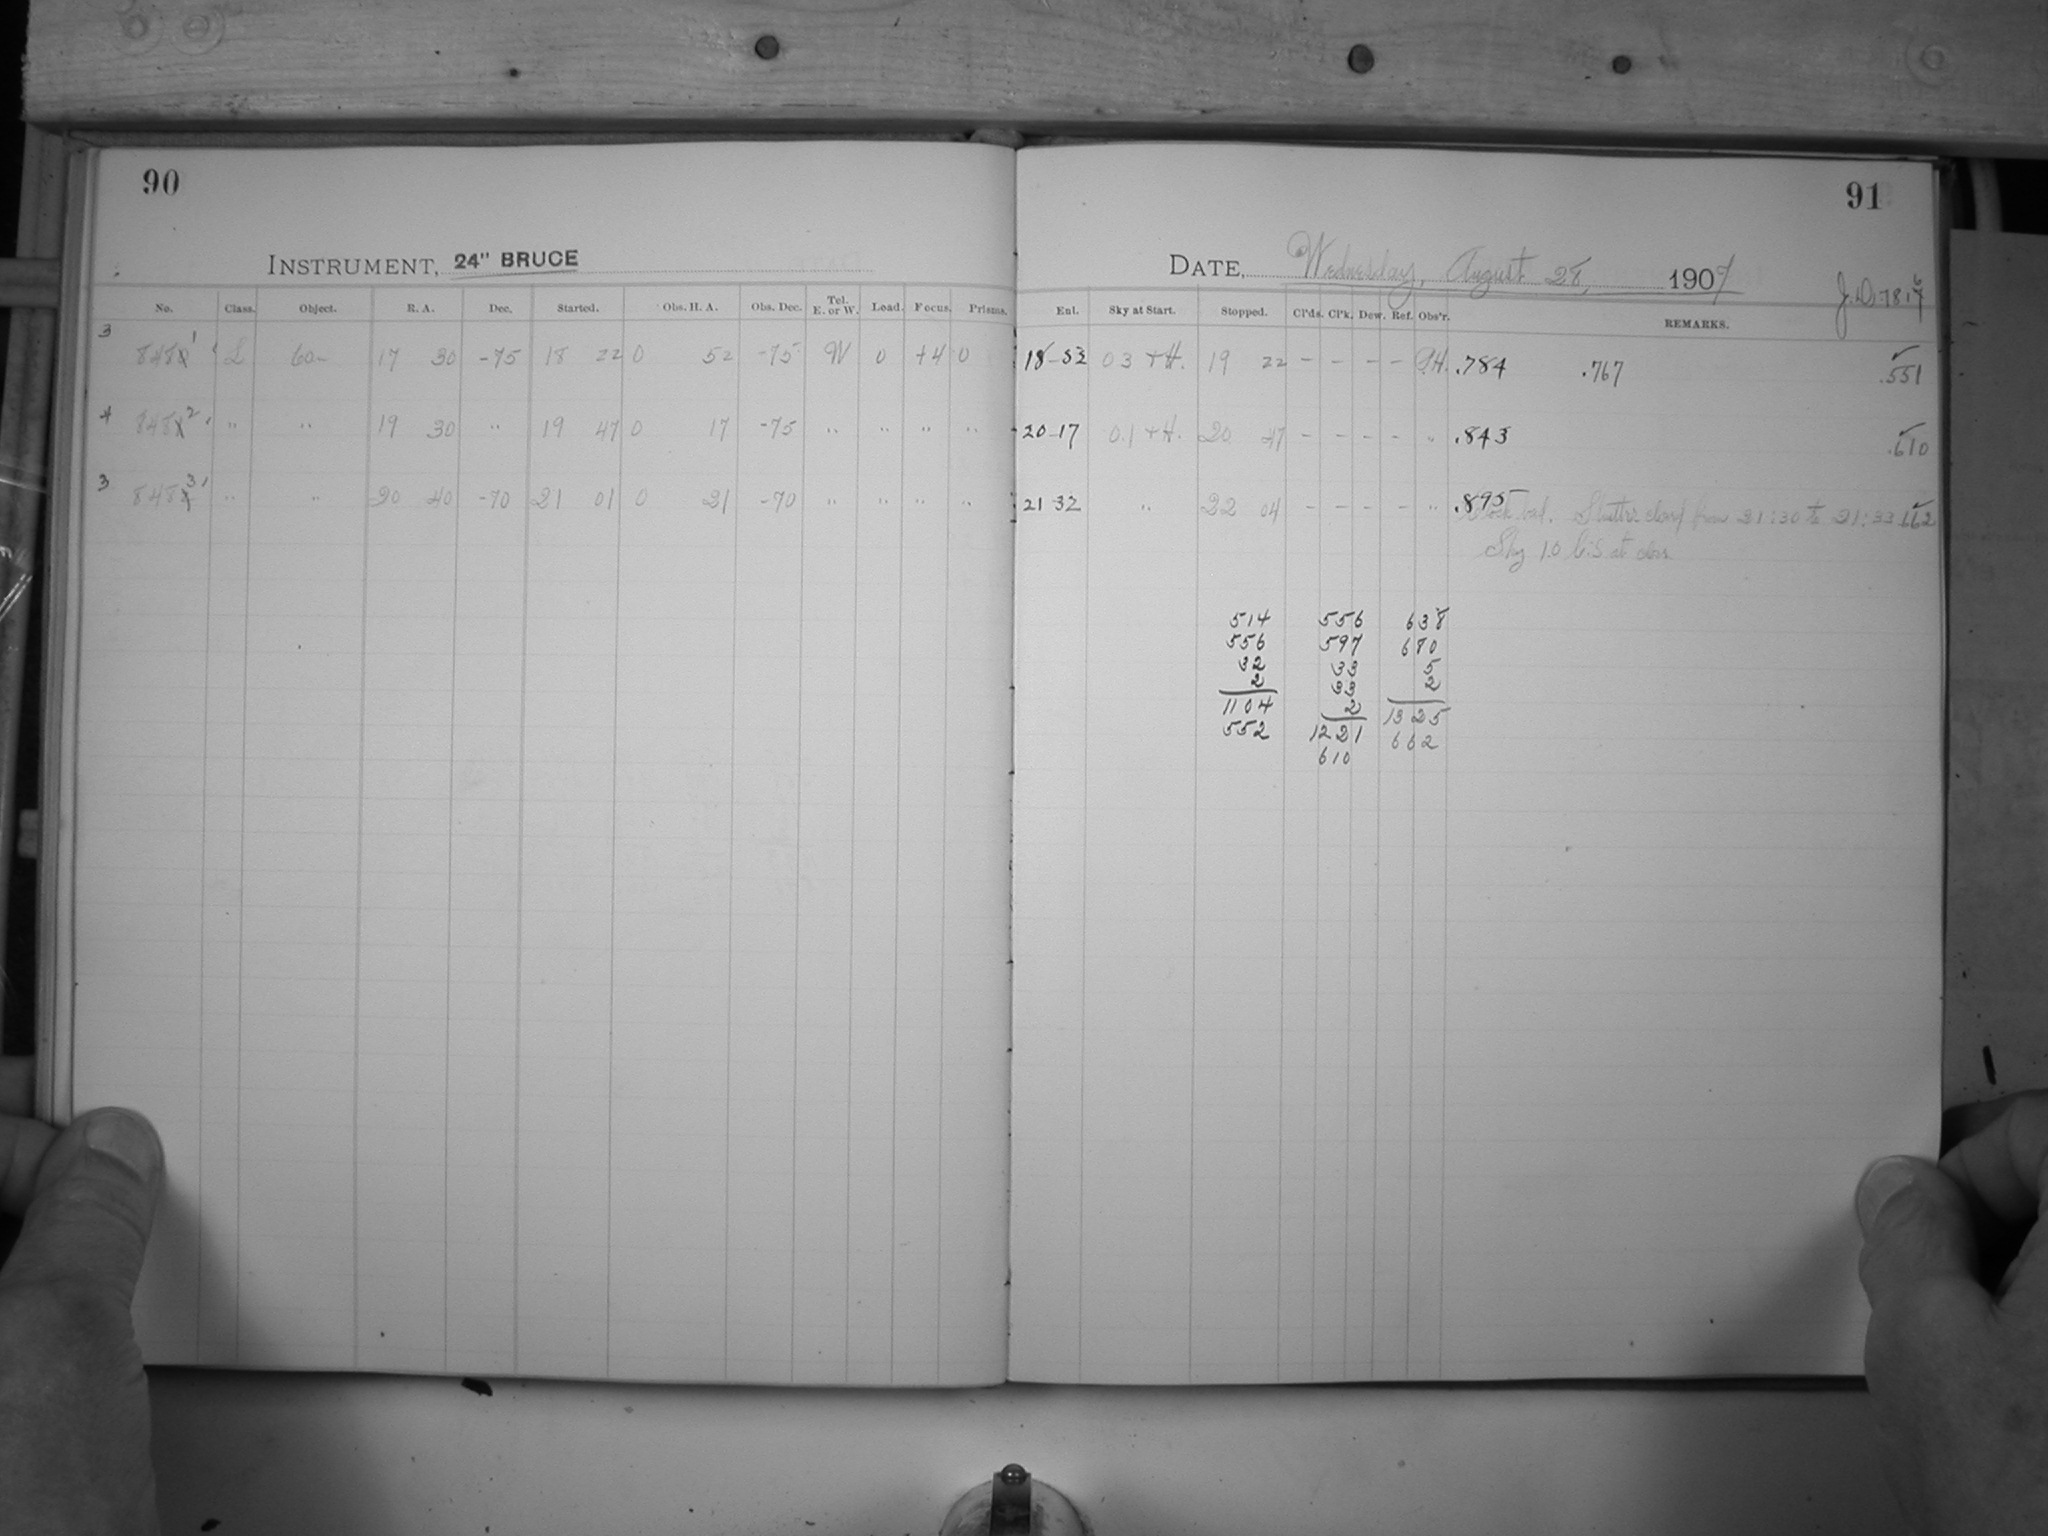 90
INSTRUMENT, 24" BRUCE
No. Class. Object. R. A. Dec. Started. Obs. H. A. Obs. Dec. Tel. E. or W. Load. Focus. Prisms.
3 848 1 L 60m 17 30 -75 18 22 0 52 -75 W 0 +4 0
4 848 2 " " 19 30 " 19 47 0 17 -75 " " " "
3 848 3 " " 20 40 -70 21 01 0 21 -70 " " " "
91
DATE, Wednesday, August 28, 1907
Ent. Sky at Start. Stopped. Cl'ds. Cl'k. Dew. Ref. Obs'r. REMARKS.
18-52 03 + H. 19 22 - - - - .784 .767 .551
20-17 0.1 + H. 20 47 - - - - " .843 .610
21 32 " 22 04 - - - - " .895
Clock bad. Shutter closed from 21:30 to 21:33 .662
Sky 10 at close
514 556 638
556 597 680
32 33 5
2 33 2
1104 2 1325
552 1221 662
610